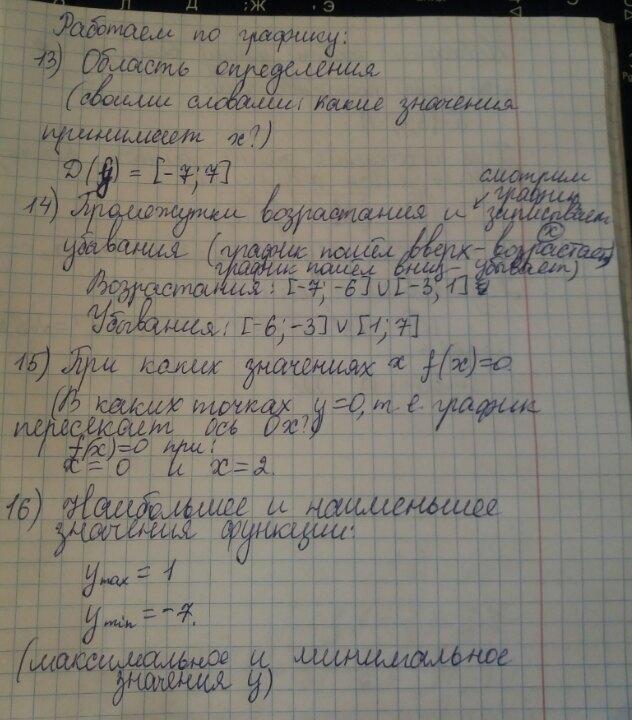 Работаем по графику:
13) Область определения
(своими словами: какие значения
принимает x?)
D(f) = [-7; 7]
смотрим
график
14) Промежутки возрастания и записываем
x
убывания (график пошёл вверх- возрастает,
график пошёл вниз- убывает)
Возрастания: [-7; -6] ∪ [-3; 1]
Убывания: [-6; -3] ∪ [1; 7]
15) При каких значениях x f(x)=0.
(В каких точках y=0, т.е. график
пересекает ось Ox?)
f(x)=0 при:
x = 0 и x = 2.
16) Наибольшее и наименьшее
значения функции:
y max = 1
y min = -7.
(максимальное и минимальное
значения y)